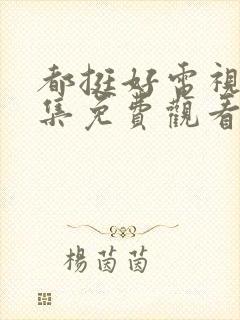 都挺好電視
集免費觀看
楊茵茵